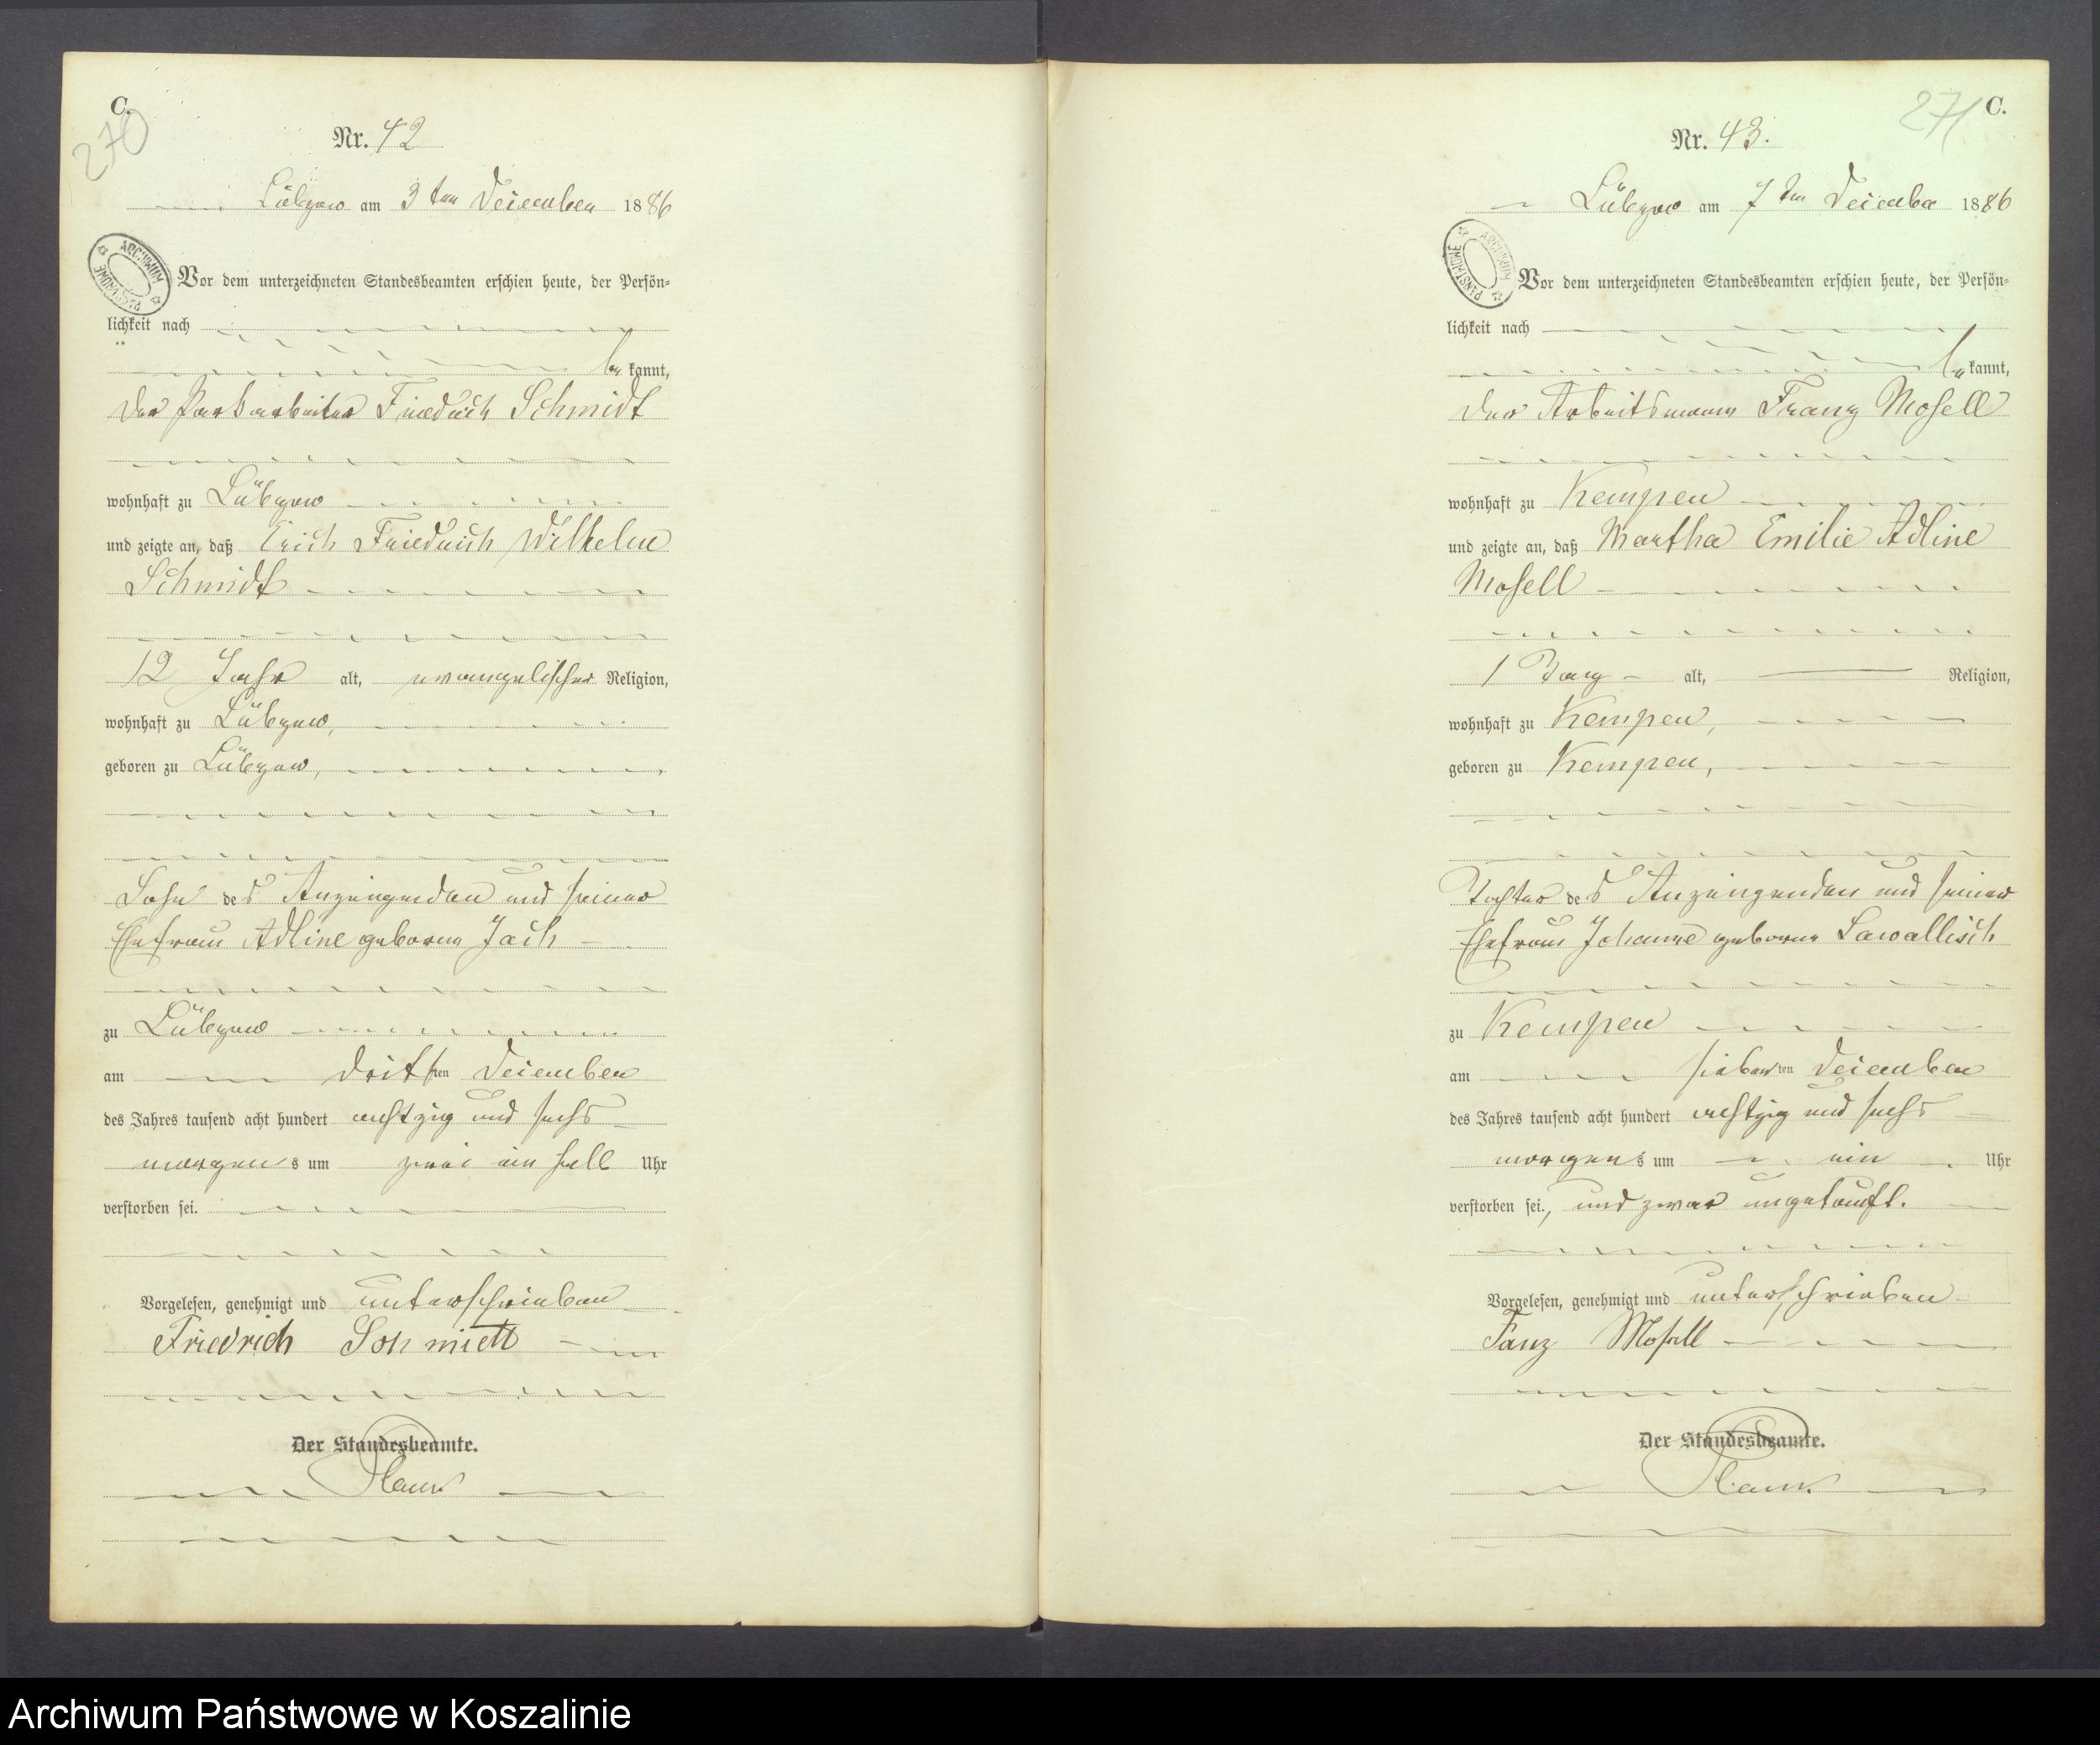 C.
270
Nr. 42
Lübzow am 3ten December 1886
ARCHIWUM PAŃSTWOWE
Vor dem unterzeichneten Standesbeamten erschien heute, der Persön-
lichkeit nach
be kannt,
der Parkarbeiter Friedrich Schmidt
wohnhaft zu Lübzow
und zeigte an, daß Erich Friedrich Wilhelm
Schmidt
12 Jahr alt, evangelischer Religion,
wohnhaft zu Lübzow,
geboren zu Lübzow,
Sohn des Anzeigenden und seiner
Ehefrau Adline geborne Jach
zu Lübzow
am dritten December
des Jahres tausend acht hundert achtzig und sechs
morgens um zwei ein halb Uhr
verstorben sei.
Vorgelesen, genehmigt und unterschrieben
Friedrich Schmidt
Der Standesbeamte.
C.
271
Nr. 43.
Lübzow am 7ten December 1886
ARCHIWUM PAŃSTWOWE
Vor dem unterzeichneten Standesbeamten erschien heute, der Persön-
lichkeit nach
be kannt,
der Arbeitsmann Franz Mosell
wohnhaft zu Kempen
und zeigte an, daß Martha Emilie Adline
Mosell
1 Tag alt, Religion,
wohnhaft zu Kempen,
geboren zu Kempen,
Tochter des Anzeigenden und seiner
Ehefrau Johanne geborne Sawallisch
zu Kempen
am siebenten December
des Jahres tausend acht hundert achtzig und sechs
morgens um ein Uhr
verstorben sei., und zwar ungetauft.
Vorgelesen, genehmigt und unterschrieben
Fanz Mosell
Der Standesbeamte.
Archiwum Państwowe w Koszalinie